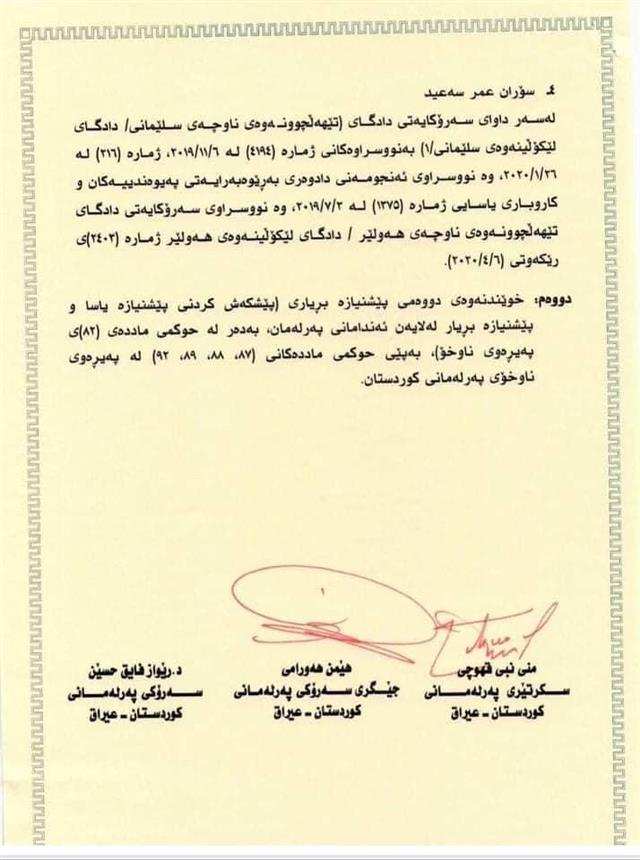 ٤ـ سۆران عمر سەعید
لەسەر داوای سەرۆکایەتی دادگای (تێهەڵچوونەوەی ناوچەی سلێمانی/ دادگای
لێکۆڵینەوەی سلێمانی/١) بەنووسراوەکانی ژمارە (٤١٩٤) لە ٢٠١٩/١١/٦، ژمارە (٢١٦) لە
٢٠٢٠/١/٢٦، وە نووسراوی ئەنجومەنی دادوەری بەڕێوەبەرایەتی پەیوەندییەکان و
کاروباری یاسایی ژمارە (١٣٧٥) لە ٢٠١٩/٧/٢، وە نووسراوی سەرۆکایەتی دادگای
تێهەڵچوونەوەی ناوچەی هەولێر / دادگای لێکۆڵینەوەی هەولێر ژمارە (٢٤٠٣)ی
رێکەوتی (٢٠٢٠/٤/٦).
دووەم: خوێندنەوەی دووەمی پێشنیازە بڕیاری (پێشکەش کردنی پێشنیازە یاسا و
پێشنیازە بڕیار لەلایەن ئەندامانی پەرلەمان، بەدەر لە حوکمی ماددەی (٨٢)ی
پەیڕەوی ناوخۆ)، بەپێی حوکمی ماددەکانی (٨٧، ٨٨، ٨٩، ٩٢) لە پەیڕەوی
ناوخۆی پەرلەمانی کوردستان.
منی نبی قهوچی
سکرتێری پەرلەمـــانی
کوردستان ـ عیراق
هێمن هەورامی
جێگری سەرۆکی پەرلەمانی
کوردستان ـ عیراق
د.رێواز فایق حسێن
سەرۆکی پەرلەمـــانی
کوردستان ـ عیراق